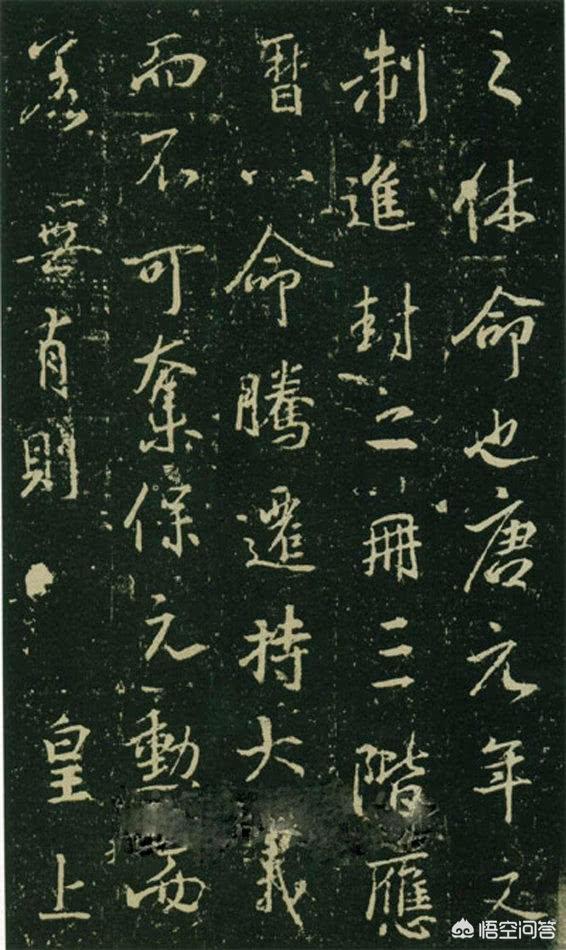 之休命也唐元年之
制進封二冊三階應
曆八命騰遷持大義
而不可奪保元勳而
若無有則 皇上
悟空问答